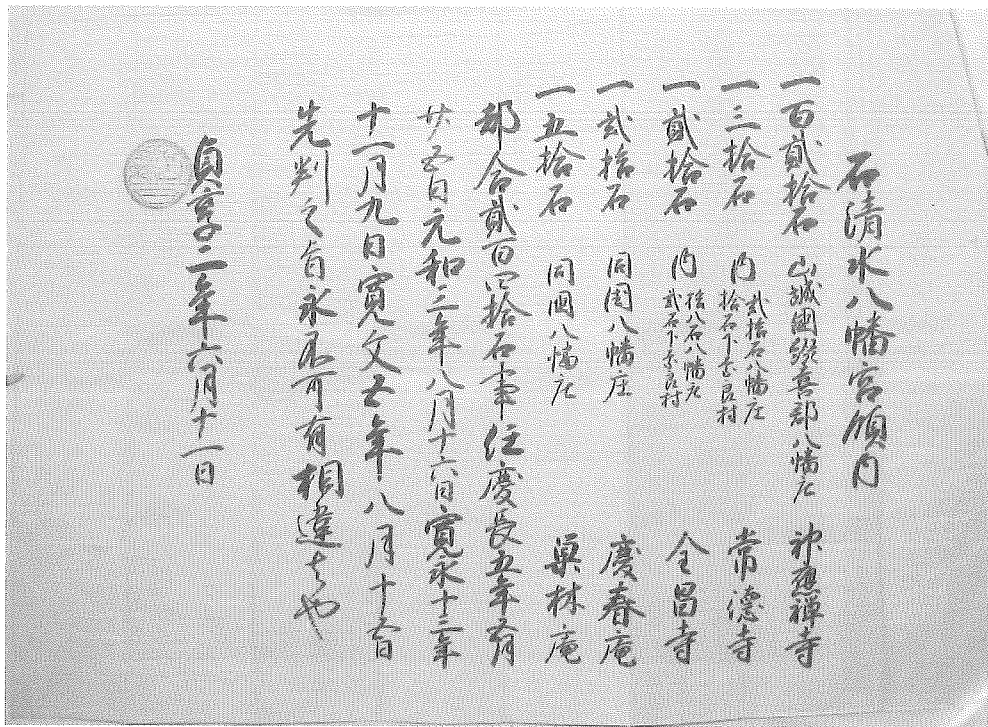 石清水八幡宮領内
一百貳拾石 山城國綴喜郡八幡庄 神應禅寺
一三拾石 内 貳拾石八幡庄 拾石下奈良村 常徳寺
一貳拾石 内 拾八石八幡庄 貳石下奈良村 全昌寺
一貳拾石 同國八幡庄 慶春庵
一五拾石 同國八幡庄 巣林庵
都合貳百四拾石事任慶長五年五月
廿五日元和三年八月十六日寛永十三年
十一月九日寛文五年八月十五日
先判之旨永不可有相違者也
貞享二年六月十一日